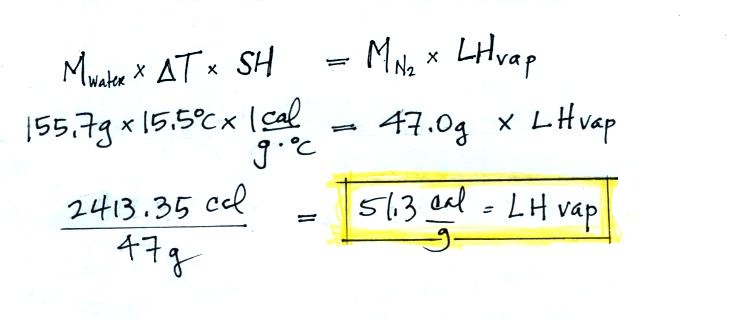 M water × ΔT × SH = M N₂ × LHvap
155.7g × 15.5°C × 1 cal/g·°C = 47.0g × LHvap
2413.35 cal/47g = 51.3 cal/g = LH vap